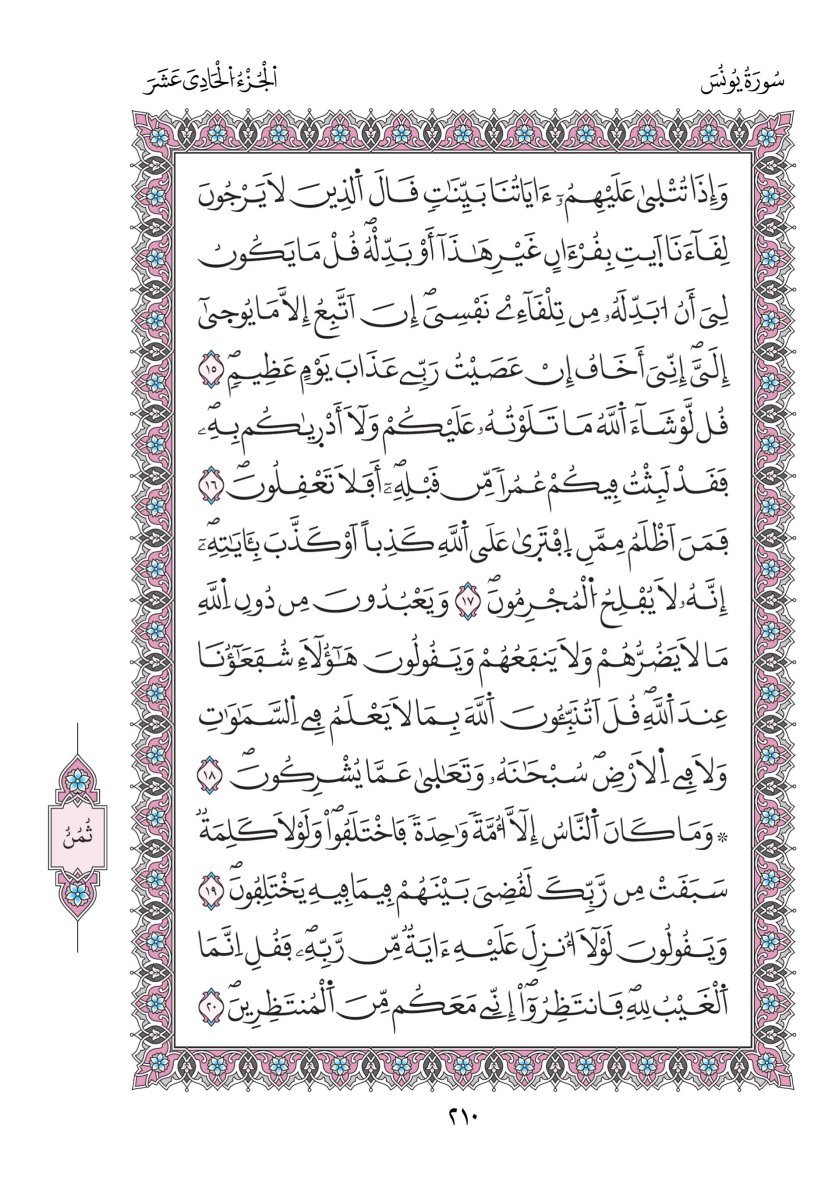 سُورَةُ يُونُسَ
اَ۬لْجُزْءُ اُ۬لْحَادِيَ عَشَرَ
وَإِذَا تُتْل۪ىٰ عَلَيْهِمُۥٓ ءَايَاتُنَا بَيِّنَٰتٖ قَالَ اَ۬لذِينَ لَا يَرْجُونَ
لِقَآءَنَا اَ۪يتِ بِقُرْءَانٍ غَيْرِ هَٰذَآ أَوْ بَدِّلْهُۖ قُلْ مَا يَكُونُ
لِيَ أَنُ ا۟بَدِّلَهُۥ مِن تِلْقَآءِےْ نَفْسِيَۖ إِنَ اَتَّبِعُ إِلَّا مَا يُوح۪ىٰٓ
إِلَيَّۖ إِنِّيَ أَخَافُ إِنْ عَصَيْتُ رَبِّے عَذَابَ يَوْمٍ عَظِيمٖۖ ١٥
قُل لَّوْ شَآءَ اَ۬للَّهُ مَا تَلَوْتُهُۥ عَلَيْكُمْ وَلَآ أَدْر۪يٰكُم بِهِۦۖ
فَقَدْ لَبِثْتُ فِيكُمْ عُمُراٗ مِّن قَبْلِهِۦٓۖ أَفَلَا تَعْقِلُونَۖ ١٦
فَمَنَ اَظْلَمُ مِمَّنِ اِ۪فْتَر۪ىٰ عَلَى اَ۬للَّهِ كَذِباً اَوْ كَذَّبَ بِـَٔايَٰتِهِۦٓۖ
إِنَّهُۥ لَا يُفْلِحُ اُ۬لْمُجْرِمُونَۖ ١٧ وَيَعْبُدُونَ مِن دُونِ اِ۬للَّهِ
مَا لَا يَضُرُّهُمْ وَلَا يَنفَعُهُمْ وَيَقُولُونَ هَٰٓؤُلَآءِ شُفَعَٰٓؤُنَا
عِندَ اَ۬للَّهِۖ قُلَ اَتُنَبِّـُٔونَ اَ۬للَّهَ بِمَا لَا يَعْلَمُ فِے اِ۬لسَّمَٰوَٰتِ
وَلَا فِے اِ۬لَارْضِۖ سُبْحَٰنَهُۥ وَتَعَٰل۪ىٰ عَمَّا يُشْرِكُونَۖ ١٨
۞ وَمَا كَانَ اَ۬لنَّاسُ إِلَّآ أُمَّةٗ وَٰحِدَةٗ فَاخْتَلَفُواْۖ وَلَوْلَا كَلِمَةٞ
سَبَقَتْ مِن رَّبِّكَ لَقُضِيَ بَيْنَهُمْ فِيمَا فِيهِ يَخْتَلِفُونَۖ ١٩
وَيَقُولُونَ لَوْلَآ أُنزِلَ عَلَيْهِ ءَايَةٞ مِّن رَّبِّهِۦۖ فَقُلِ اِنَّمَا
اَ۬لْغَيْبُ لِلهِۖ فَانتَظِرُوٓاْۖ إِنِّے مَعَكُم مِّنَ اَ۬لْمُنتَظِرِينَۖ ٢٠
ثُمُنُ
٢١٠